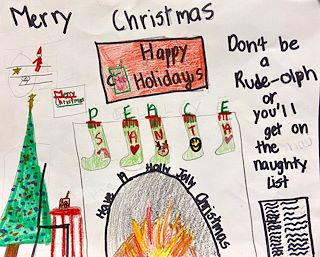 Merry Christmas
Happy
Holidays
Merry
Christmas
PEACE
SANTA
Have A Holly Jolly Christmas
Don't be
a
Rude-olph
or
you'll
get on
the
naughty
list